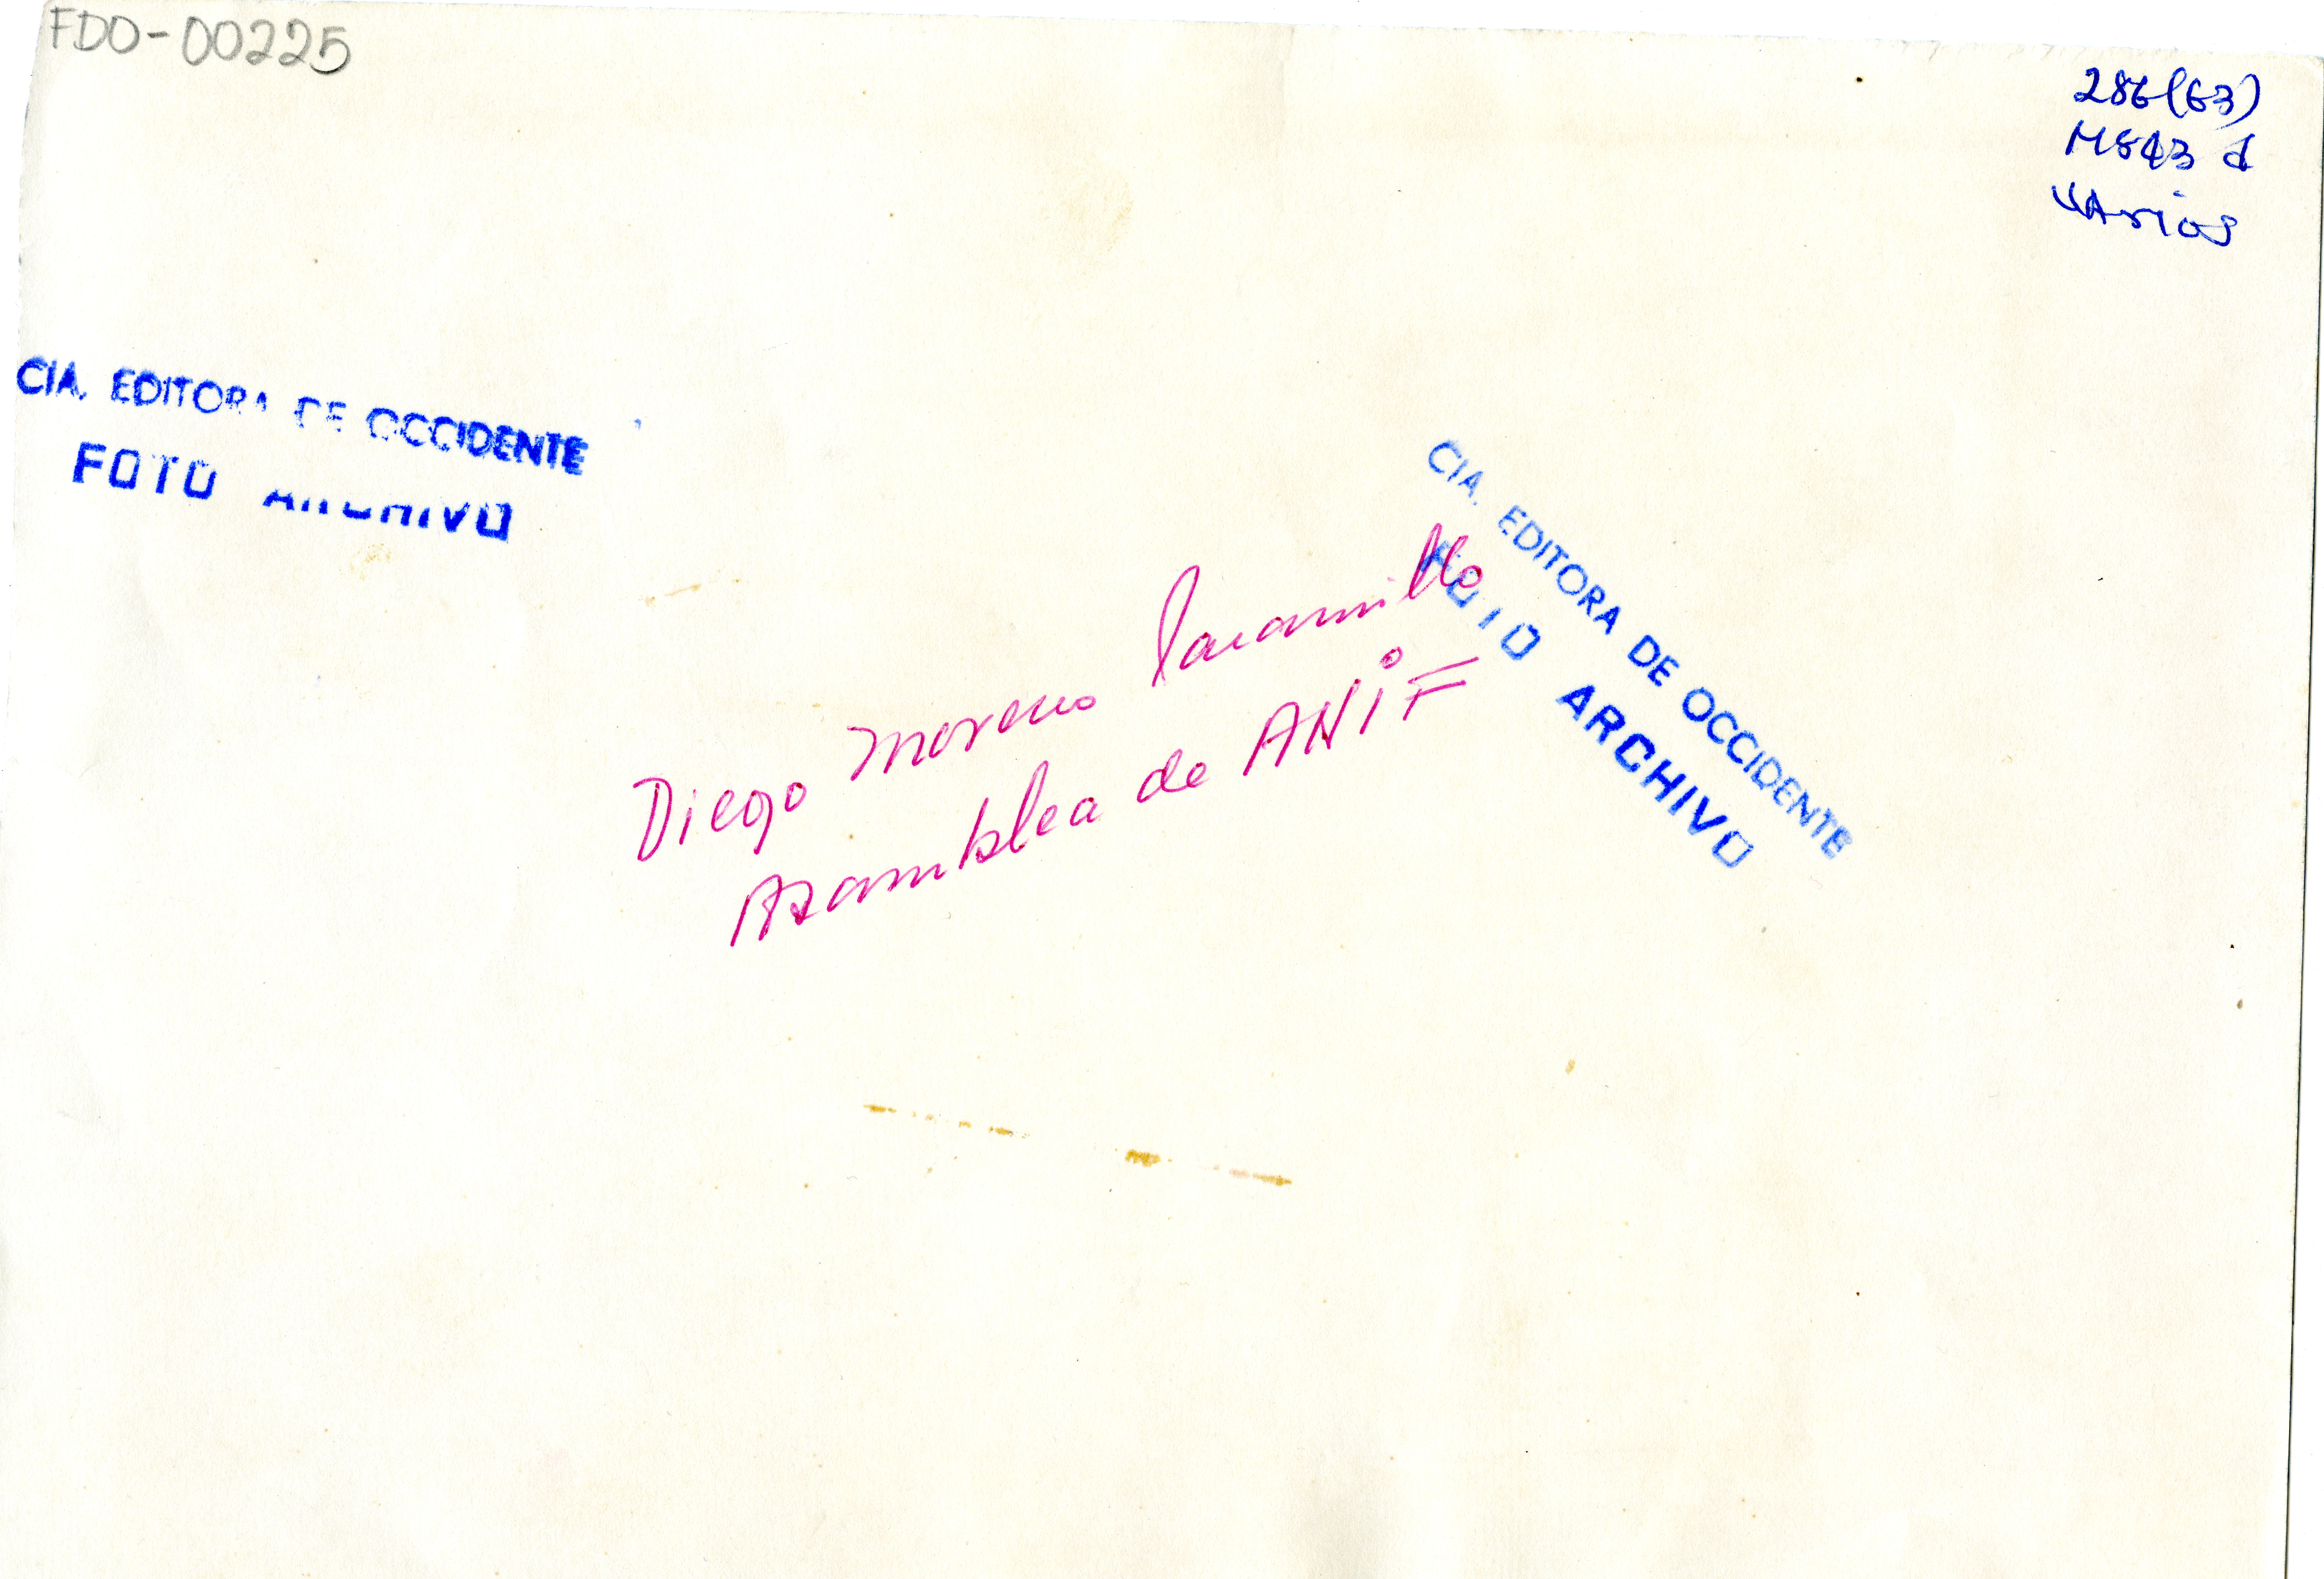 FDO-00225
286(63)
M843 d
VArios
CIA. EDITORA DE OCCIDENTE
FOTO ARCHIVO
CIA. EDITORA DE OCCIDENTE
FOTO ARCHIVO
Diego Moreno Jaramillo
Asamblea de ANiF